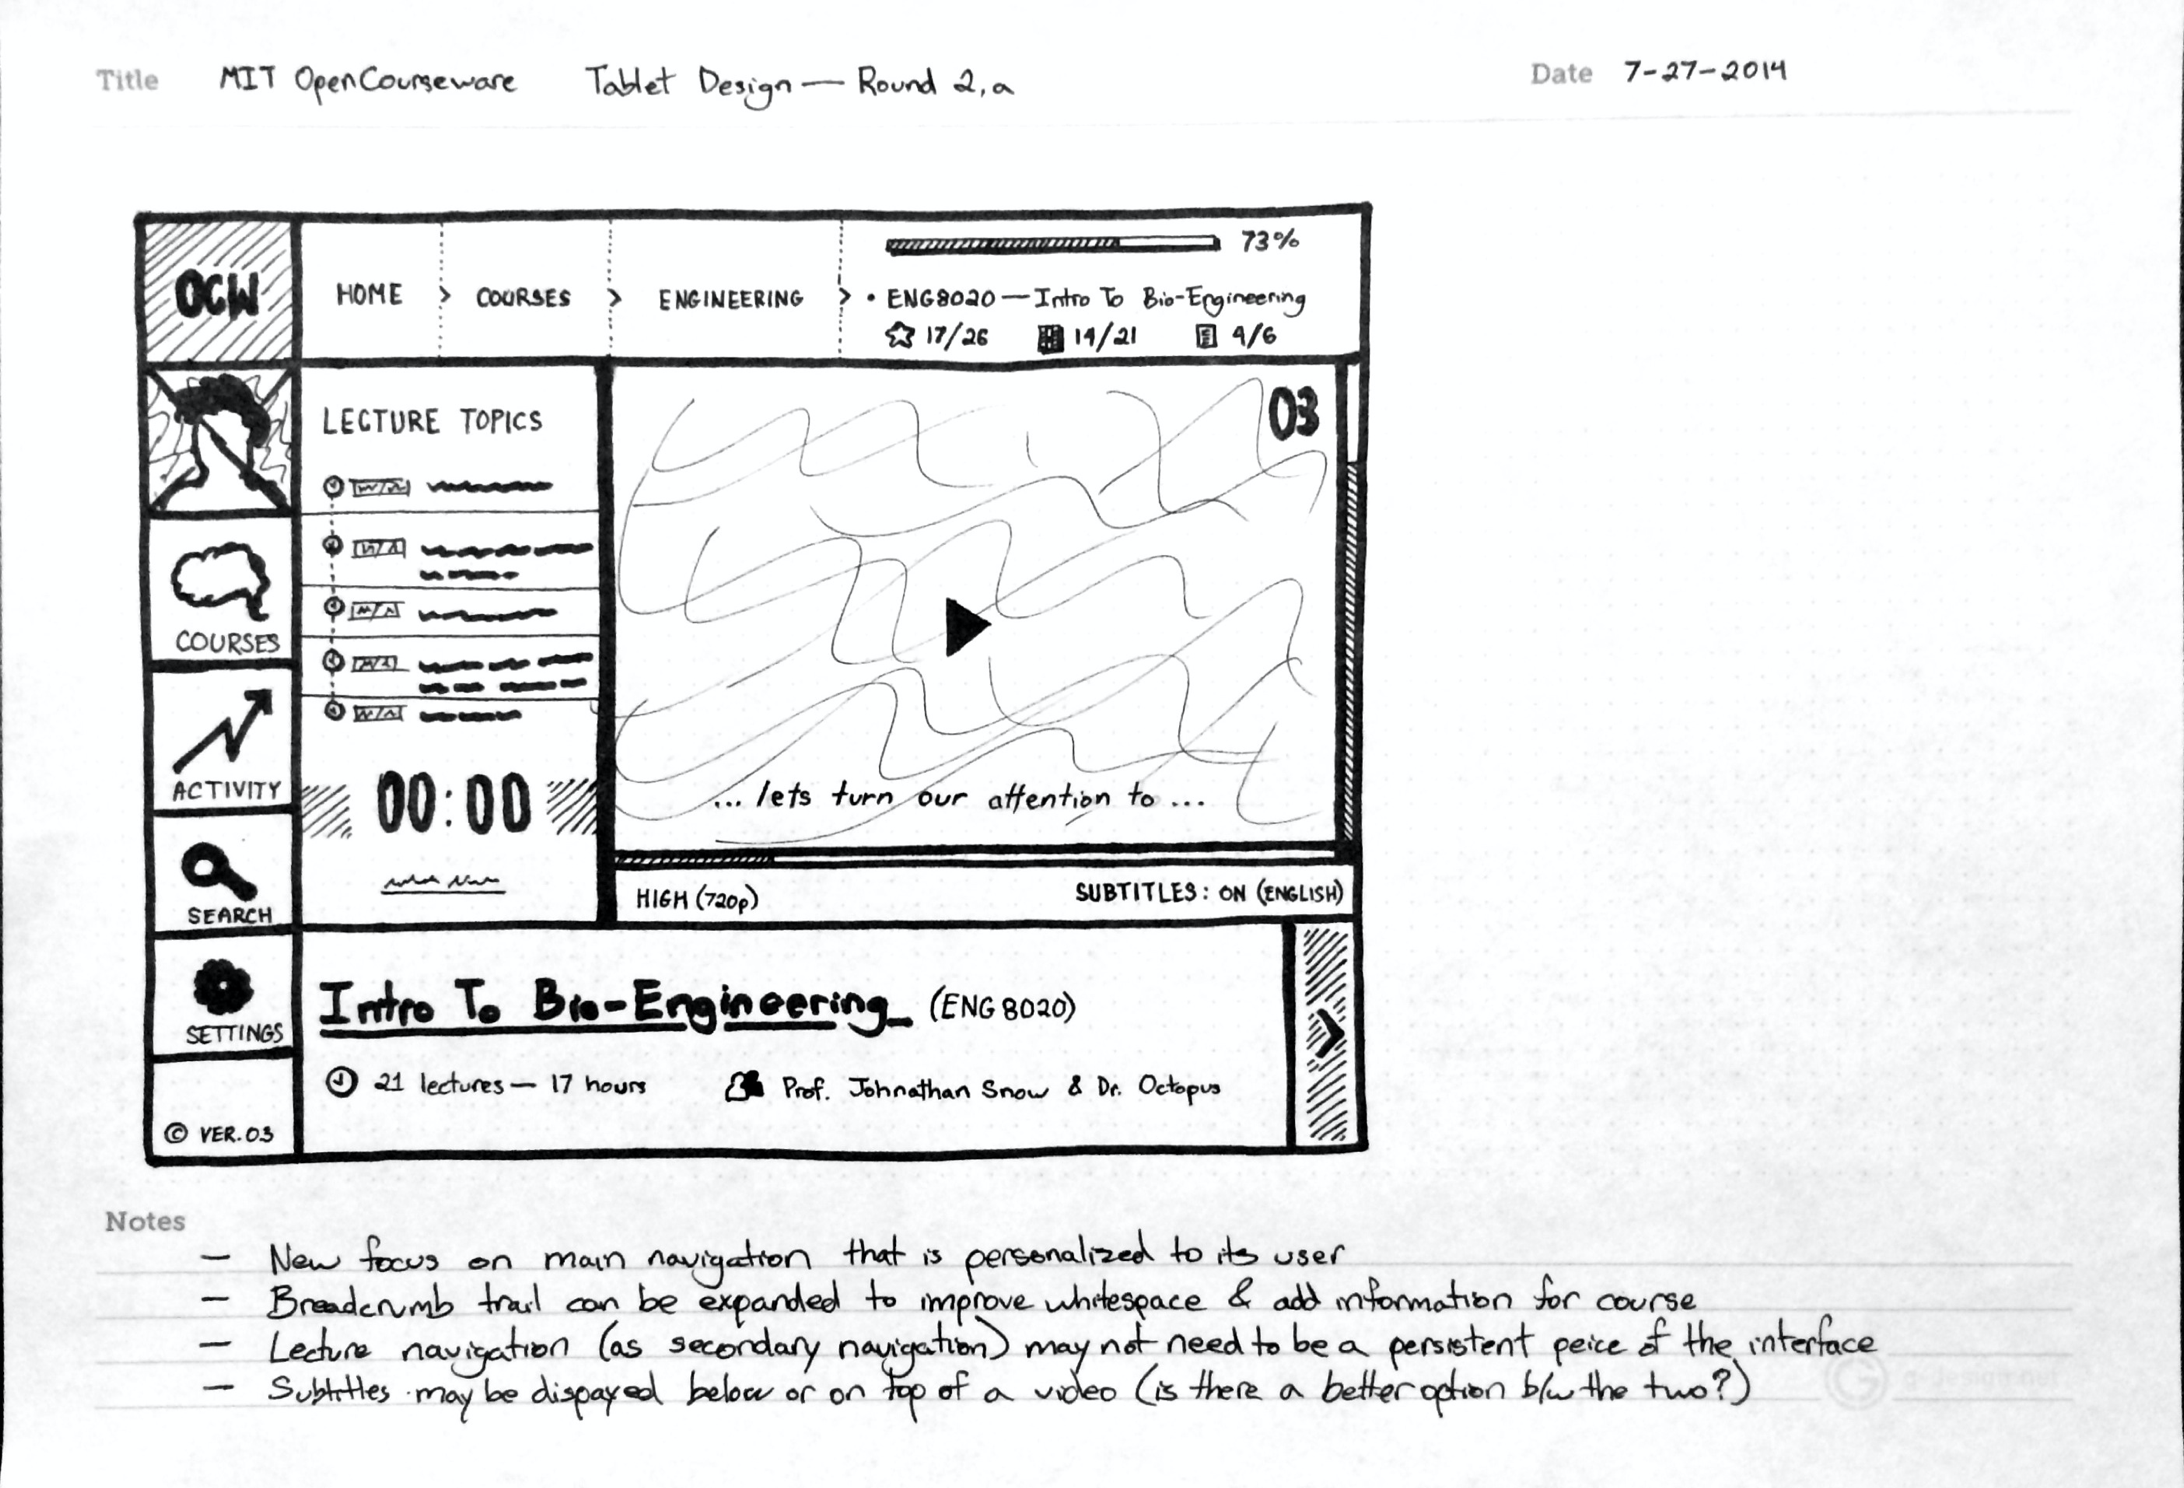 Title MIT OpenCourseware Tablet Design — Round 2,a
Date 7-27-2014
OCW
HOME > COURSES > ENGINEERING >
73%
• ENG8020 — Intro To Bio-Engineering
17/26 14/21 4/6
COURSES
ACTIVITY
SEARCH
SETTINGS
© VER.03
LECTURE TOPICS
00:00
03
... lets turn our attention to ...
HIGH (720p)
SUBTITLES: ON (ENGLISH)
Intro To Bio-Engineering (ENG8020)
21 lectures — 17 hours
Prof. Johnathan Snow & Dr. Octopus
Notes
— New focus on main navigation that is personalized to its user
— Breadcrumb trail can be expanded to improve whitespace & add information for course
— Lecture navigation (as secondary navigation) may not need to be a persistent peice of the interface
— Subtitles may be dispayed below or on top of a video (is there a better option b/w the two?)
g-design.net